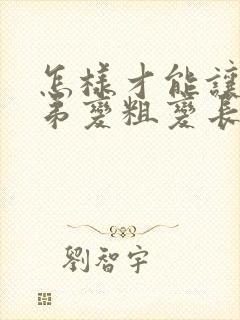 怎樣才能讓
弟變粗變長
劉智宇